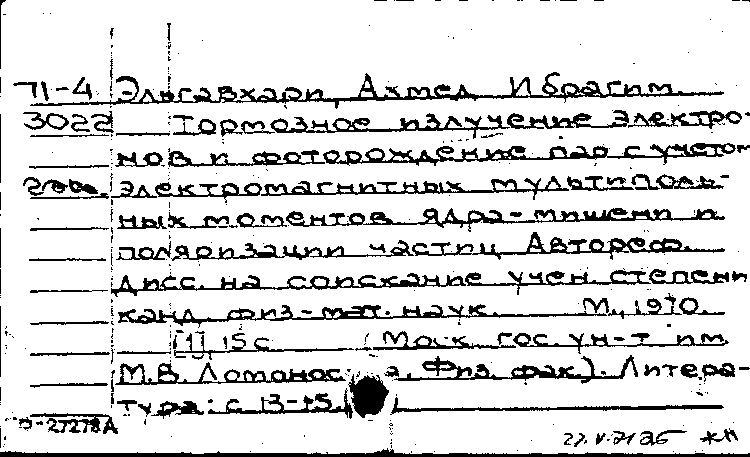 71-4 Эльгавхари, Ахмед Ибрагим.
3022 Тормозное излучение электро-
нов и фоторождение пар с учетом
электромагнитных мультиполь-
ных моментов ядра-мишени и
поляризации частиц. Автореф.
дисс. на соискание учен. степени
канд. физ-мат. наук. М., 1970.
[1], 15 с. (Моск. гос. ун-т им.
М.В. Ломоносова. Физ. фак.). Литера-
тура: с. 13-15.
27278А